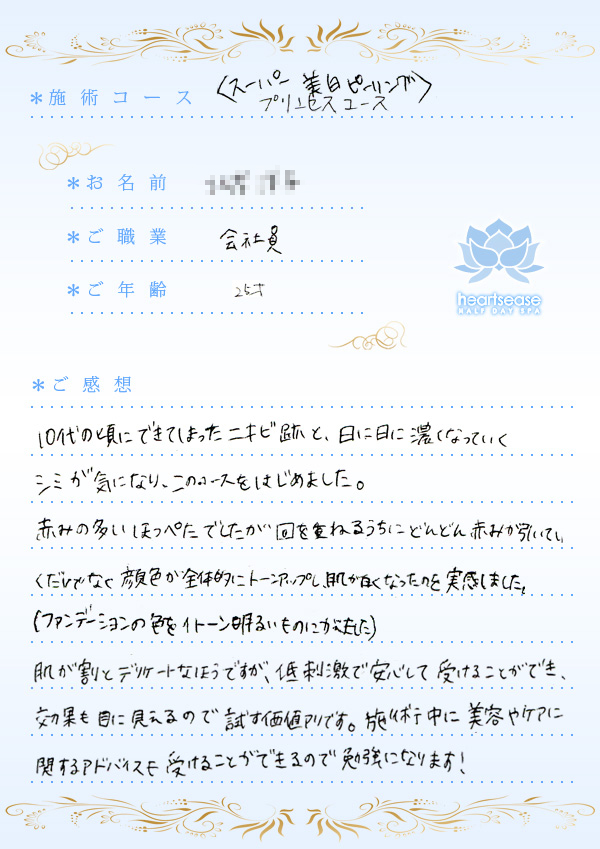 *施術コース
〈スーパー美白ピーリング〉
プリンセスコース
*お名前
*ご職業 会社員
*ご年齢 25才
heartsease
HALF DAY SPA
*ご感想
10代の頃にできてしまったニキビ跡と、日に日に濃くなっていく
シミが気になり、このコースをはじめました。
赤みの多いほっぺたでしたが回を重ねるうちにどんどん赤みが引いてい
くだけでなく顔色が全体的にトーンアップし、肌が白くなったのを実感しました。
(ファンデーションの色を1トーン明るいものにかえました)
肌が割とデリケートなほうですが、低刺激で安心して受けることができ、
効果も目に見えるので試す価値アリです。施術中に美容やケアに
関するアドバイスも受けることができるので勉強になります!